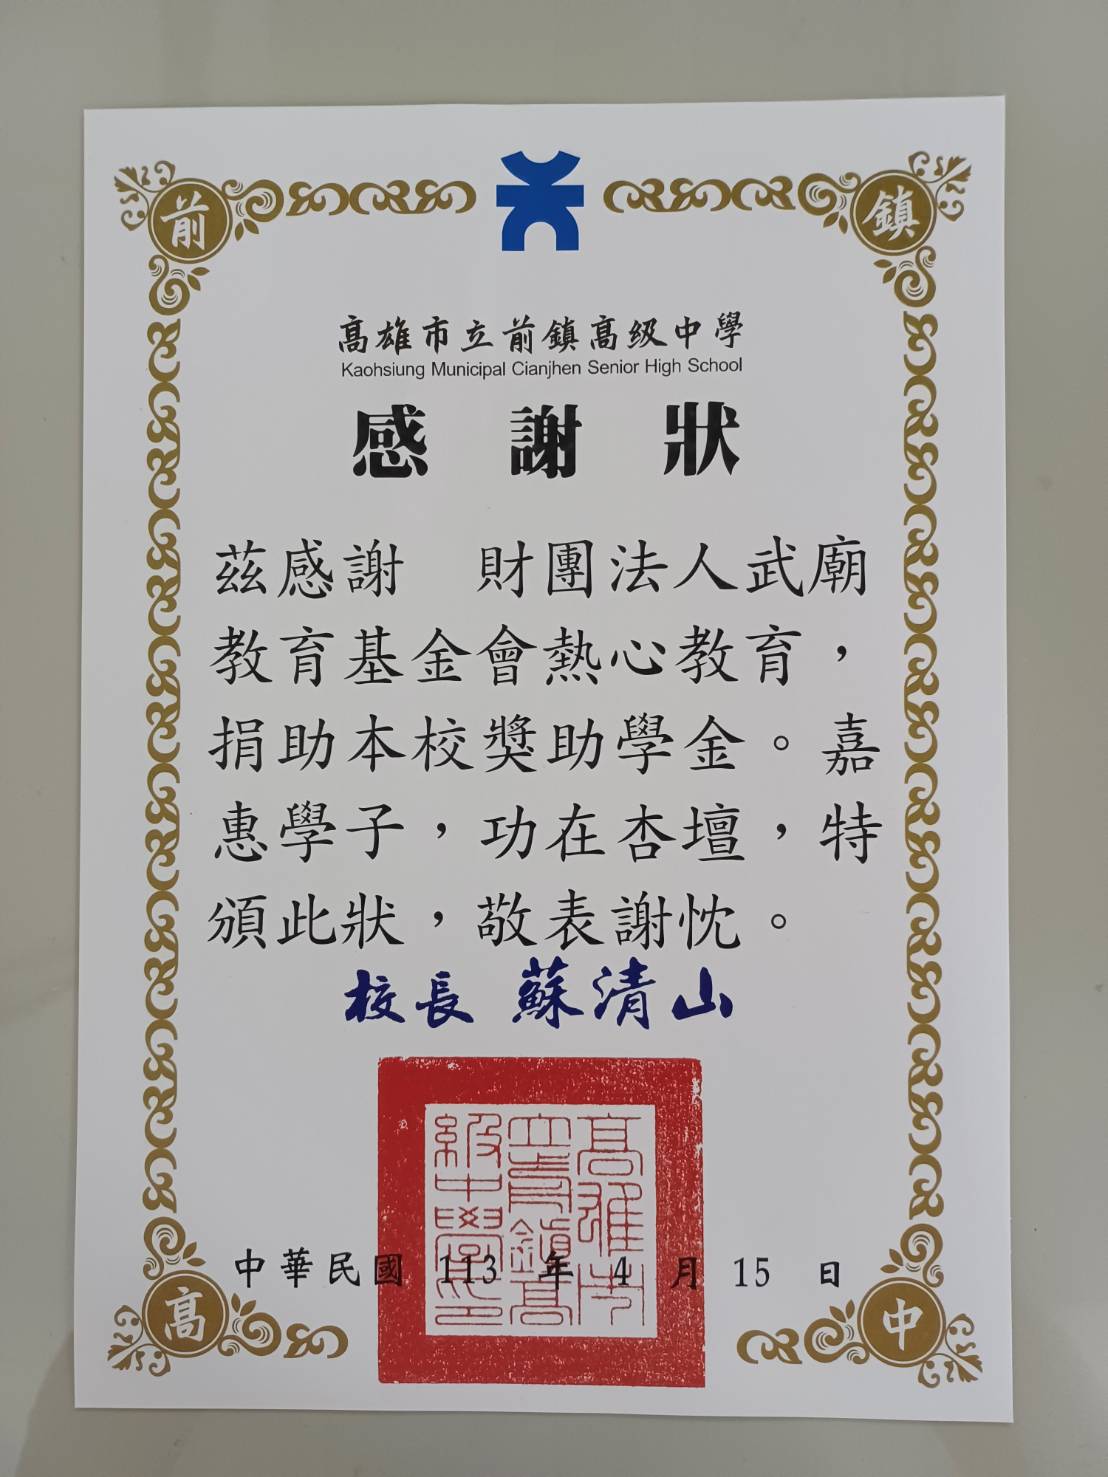 前
鎮
高雄市立前鎮高級中學
Kaohsiung Municipal Cianjhen Senior High School
感謝狀
茲感謝 財團法人武廟
教育基金會熱心教育，
捐助本校獎助學金。嘉
惠學子，功在杏壇，特
頒此狀，敬表謝忱。
校長 蘇清山
高雄市
立前鎮高
級中學印
中華民國 113 年 4 月 15 日
高
中